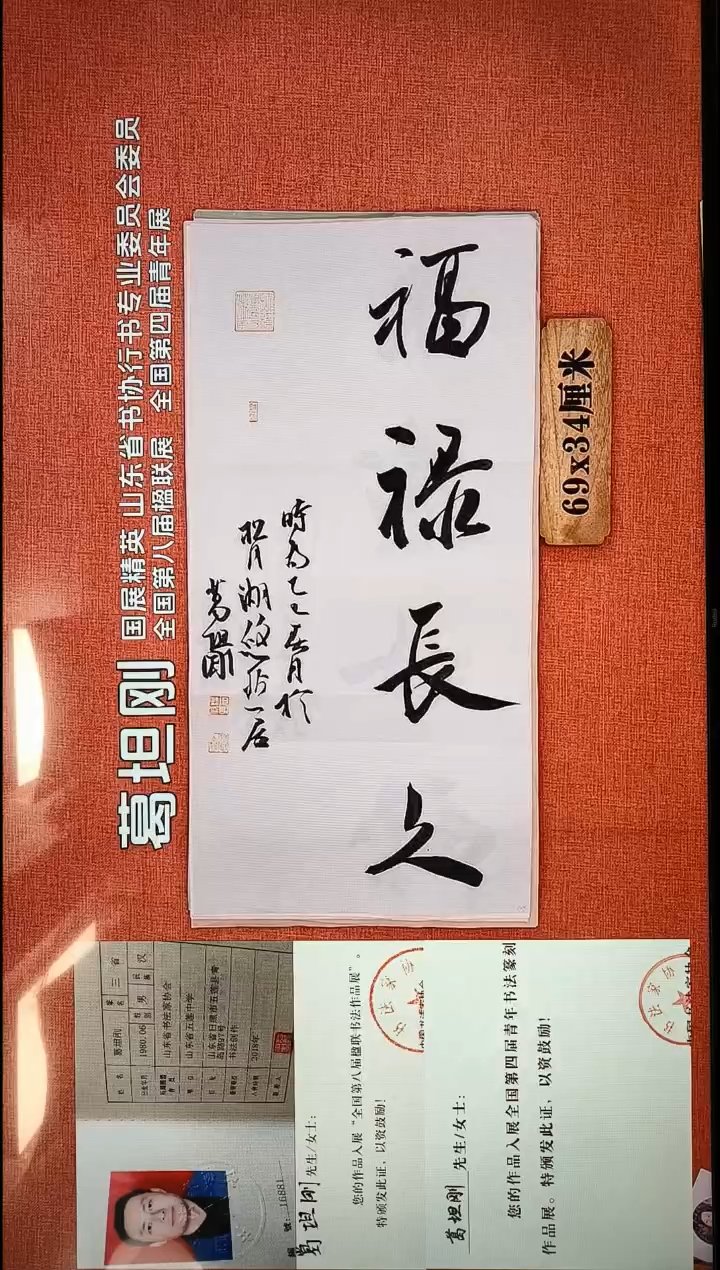 葛坦刚
国展精英 山东省书协行书专业委员会委员
全国第八届楹联展 全国第四届青年展
福禄長久
時為乙巳春月於
碧月湖後一居
葛坦剛
69x34厘米
葛坦刚
1980.06
男
汉
山东省书法家协会
山东省五莲中学
书法创作
2018年
号: 16881
葛坦刚 先生/女士:
您的作品入展“全国第八届楹联书法作品展”。
特颁发此证,以资鼓励!
葛坦刚 先生/女士:
您的作品入展全国第四届青年书法篆刻
作品展。特颁发此证,以资鼓励!